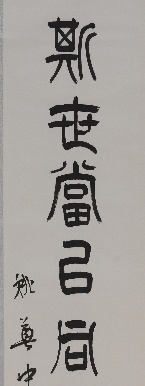 斯世當以同
姚奠中